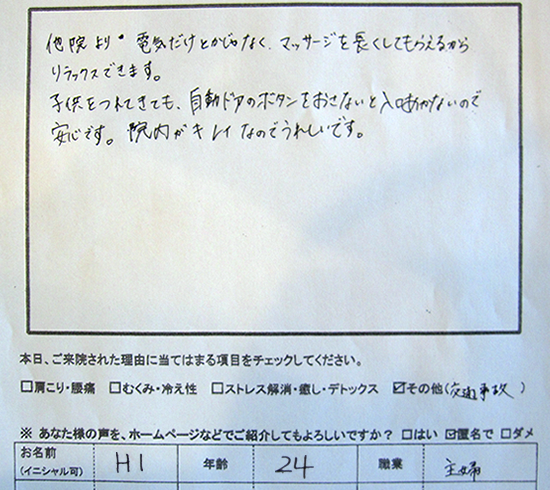 他院より・電気だけとかじゃなく、マッサージを長くしてもらえるから
リラックスできます。
子供をつれてきても、自動ドアのボタンをおさないと入口があかないので
安心です。院内がキレイなのでうれしいです。
本日、ご来院された理由に当てはまる項目をチェックしてください。
□肩こり・腰痛 □むくみ・冷え性 □ストレス解消・癒し・デトックス ☑その他(交通事故)
※ あなた様の声を、ホームページなどでご紹介してもよろしいですか? □はい ☑匿名で □ダメ
お名前 (イニシャル可) H I 年齢 24 職業 主婦